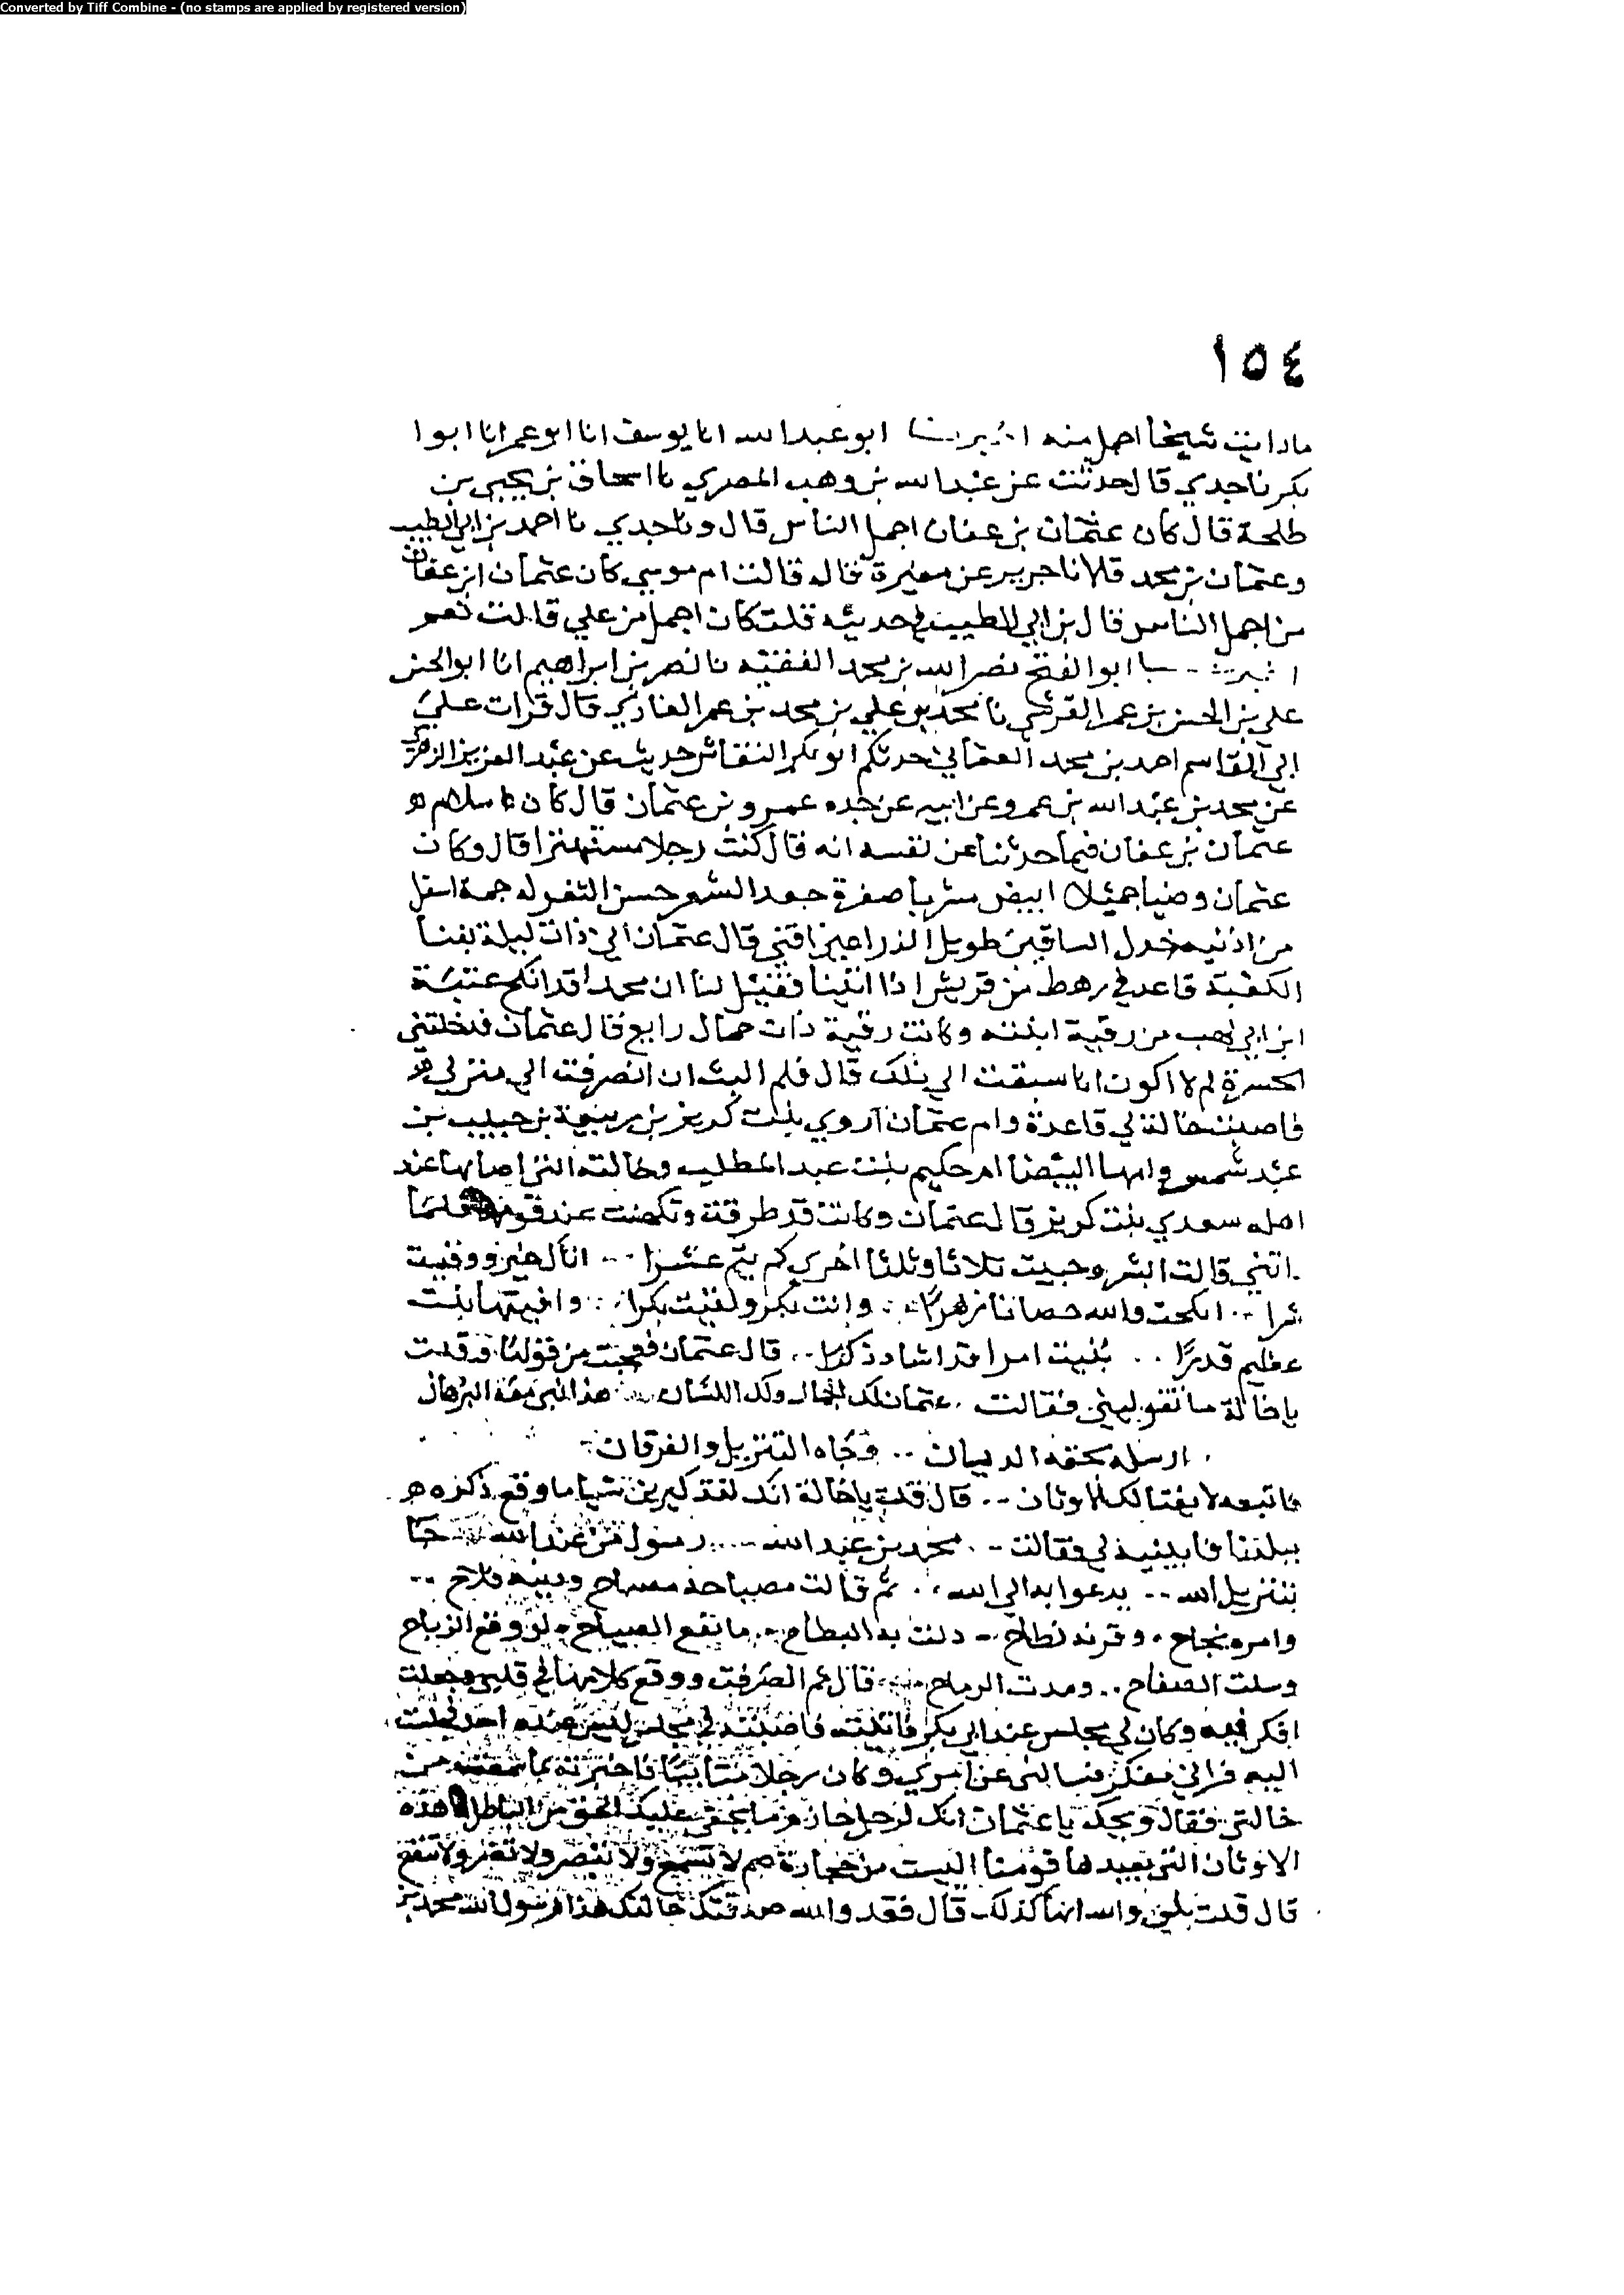 Converted by Tiff Combine - (no stamps are applied by registered version)
١٥٤
مادايت شيخا اجمل منه اخبرنا ابو عبد الله انا يوسف انا ابو عمر انا ابوا
بكر نا جدي قال حدثت عن عبد الله بن وهب المصري نا اسحاق بن يحيى بن
طلحة قال كان عثمان بن عفان اجمل الناس قال ونا جدي نا احمد بن ابي الطيب
وعثمان بن محمد قالا نا جرير عن مغيرة قال قالت ام موسى كان عثمان ابن عفان
من اجمل الناس قال بن ابي الطيب في حديثه قلت كان اجمل من علي قالت نعم
اخبرنا ابو الفتح نصر الله بن محمد الفقيه نا نصر بن ابراهيم انا ابو الحسن
علي بن الحسن بن عمر القرشي نا محمد بن علي بن محمد بن عمر الغازي قال قرات على
ابي القاسم احمد بن محمد العثماني حدثكم ابو بكر النقاش حديث عن عبد العزيز الزهري
عن محمد بن عبد الله بن عمرو عن ابيه عن جده عمرو بن عثمان قال كان اسلام
عثمان بن عفان فيما حدثنا عن نفسه انه قال كنت رجلا مستهترا قال وكان
عثمان وضيا جميلا ابيض مشربا صفرة جعد الشعر حسن الثغر له جمة اسفل
من اذنيه خدل الساقين طويل الذراعين اقنى قال عثمان اني ذات ليلة بفنا
الكعبة قاعد في رهط من قريش اذا اتينا فقيل لنا ان محمدا قد انكح عتبة
ابن ابي لهب من رقية ابنته وكانت رقية ذات جمال رايع قال عثمان فدخلتني
الحسرة لم لا اكون انا سبقت الي ذلك قال فلم البث ان انصرفت الي منزلي
فاصبت خالة لي قاعدة وام عثمان اروي بنت كريز بن ربيعة بن حبيب بن
عبد شمس وامها البيضا ام حكيم بنت عبد المطلب وخالته التي اصابها عند
اهله سعدي بنت كريز قال عثمان وكانت قد طرقت وتكهنت عند قومها فلما
راتني قالت ابشر وحبيت ثلاثا وثلثا اخري كم يتم عشرا .. اتاك خير ووقيت
شرا .. انكحت والله حصانا زهرا .. وانت بكر ولقيت بكرا .. وافيتها بنت
عظيم قدرا .. بنيت امرا قد اشاد ذكرا .. قال عثمان فعجبت من قولها وقلت
يا خالة ما تقوليني فقالت عثمان لك الجمال ولك اللسان هذا النبي معه البرهان
ارسله بحقه الديان .. وجاه التنزيل والفرقان
فاتبعه لا يغتالك الاوثان .. قال قلت يا خالة انك لتذكرين شيا ما وقع ذكره
ببلدنا فابينيه لي فقالت .. محمد بن عبد الله .... رسول من عند الله جا
بتنزيل الله .. يدعوا به الي الله .. ثم قالت مصباحه مصباح ودينه فلاح ..
وامره نجاح .. وقرنه نطاح .. دلت به البطاح .. ما نفع الصياح .. لو وقع الذباح
وسلت الصفاح .. ومدت الرماح .. قال ثم انصرفت ووقع كلامها في قلبي وجعلت
افكر فيه وكان لي مجلس عند ابي بكر فاتيته فاصبته في مجلس ليس عنده احد فجلست
اليه فراني مفكرا فسالني عن امري وكان رجلا متانيا فاخبرته بما سمعت من
خالتي فقال ويحك يا عثمان انك لرجل حازم ما يخفي عليك الحق من الباطل هذه
الاوثان التي يعبدها قومنا اليست من حجارة صم لا تسمع ولا تبصر ولا تضر ولا تنفع
قال قلت بلي والله انها كذلك قال فقد والله صدقتك خالتك هذا رسول الله محمد بن